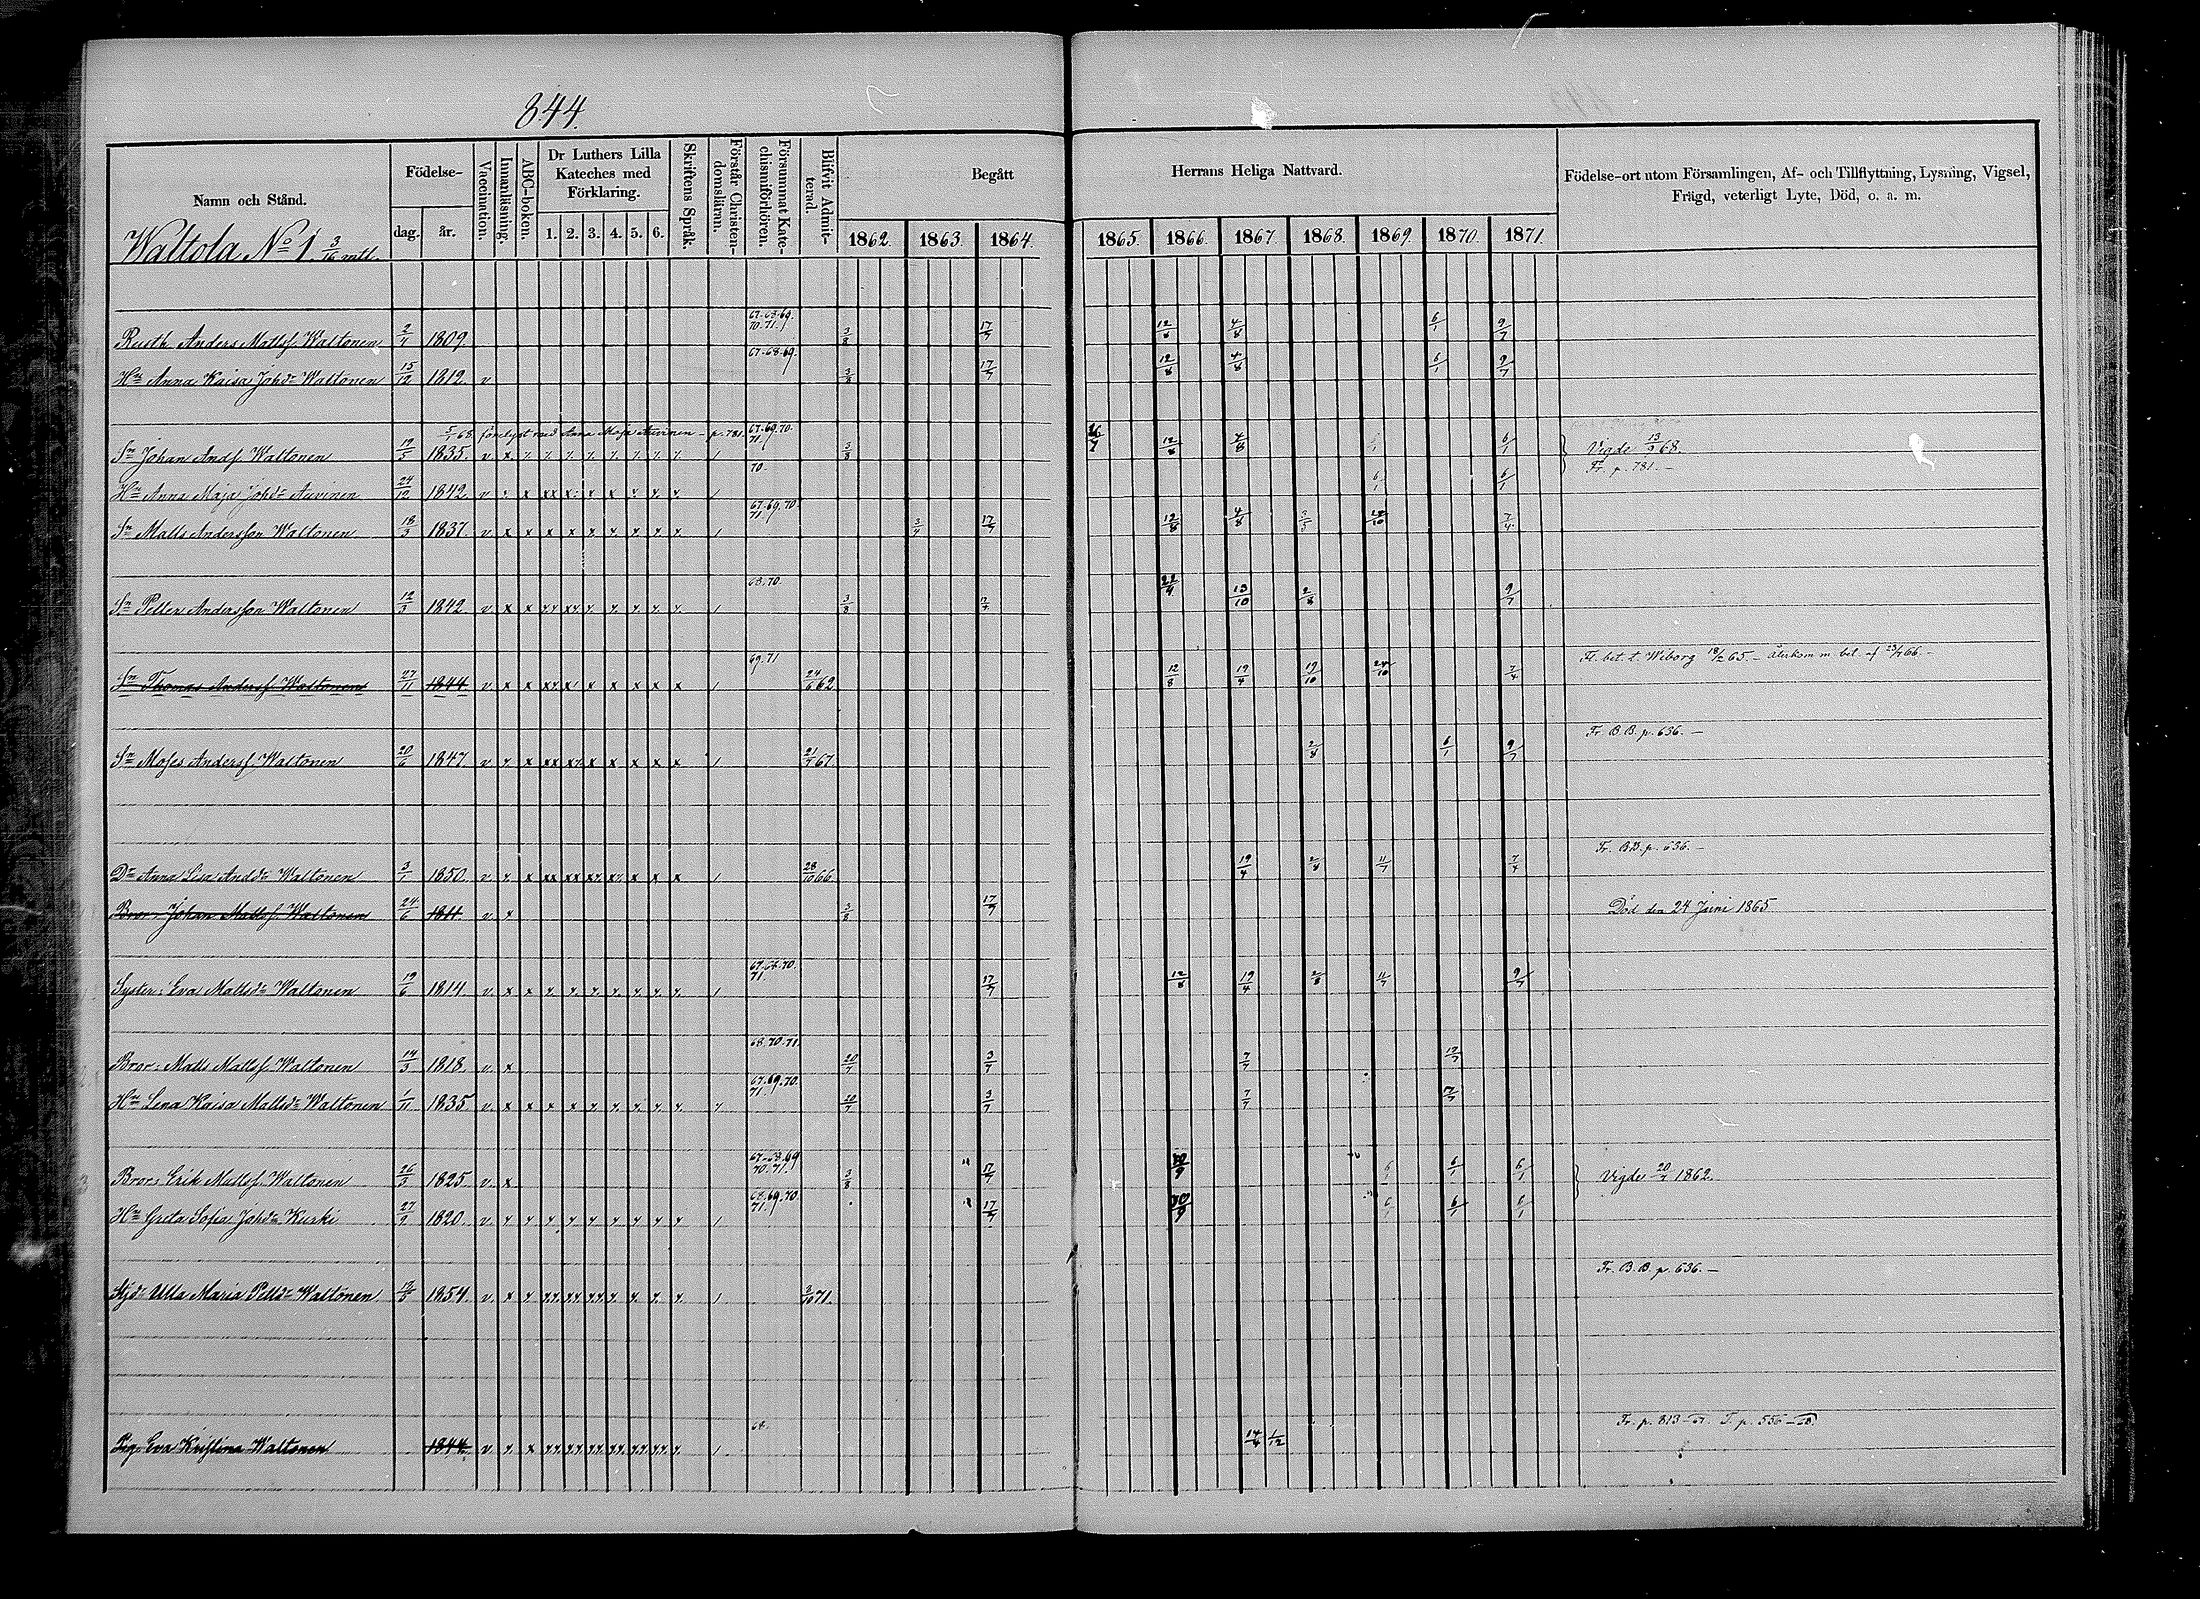 844.
Namn och Stånd. Födelse- dag. år. Vaccination. Innanläsning. ABC-boken. Dr Luthers Lilla Kateches med Förklaring. 1. 2. 3. 4. 5. 6. Skriftens Språk. Förstår Christendomsläran. Försummat Katechismiförhören. Blifvit Admitterad. Begått Herrans Heliga Nattvard. Födelse-ort utom Församlingen, Af- och Tillflyttning, Lysning, Vigsel, Frägd, veterligt Lyte, Död, o. a. m.
1862. 1863. 1864. 1865. 1866. 1867. 1868. 1869. 1870. 1871.
Waltola No 1. 3/16 mtl.
67.68.69. 70.71.
Anders Matts. Waltonen 1809. 3/8 17/7 12/8 4/8 6/1 9/7
67.68.69.
Hu Anna Kaisa Johdr Waltonen 15/12 1812. v 3/8 17/7 12/8 4/8 6/1 9/7
5/1 68. förelyst med Anna Maja Auvinen - p. 781. 67.69.70. 71.
Sn Johan Ands. Waltonen 19/5 1835. v x 3/8 12/8 4/8 6/1 Vigde 13/3 68.
70 Fr. p. 781. -
Hu Anna Maja Johdr Auvinen 24/12 1842. 6/1 6/1
67.69.70. 71.
Sn Matts Andersson Waltonen 18/3 1837. v x x x x 3/4 17/7 12/8 4/8 7/4
68.70.
Sn Petter Andersson Waltonen 12/3 1842. v x x 3/8 17/7 13/10 2/8 9/7
69.71 Fl. bet. t. Wiborg 18/2 65. - Återkom m. bet. af 23/7 66. -
Sn Thomas Anders. Waltonen 27/11 1844. v x x 24/6 62 12/8 19/4 19/10 24/10 7/4
Fr. B.B. p. 636. -
Sn Moses Anders. Waltonen 20/6 1847. 21/7 67. 2/8 6/1 9/7
Fr. B.B. p. 636. -
Dr Anna Lisa Andsdr Waltonen 3/7 1850. 28/10 66 19/4 2/8 11/7 7/4
Bror: Johan Matts. Waltonen 24/6 1811 v x 3/8 17/7 Död den 24 Juni 1865
67.68.70. 71.
Syster: Eva Mattsdr Waltonen 19/6 1814. 17/7 12/8 19/4 2/8 11/7 9/7
68.70.71.
Bror: Matts Matts. Waltonen 14/3 1818. v x 20/7 3/7 7/7 17/7
67.69.70. 71.
Hu Lena Kaisa Mattsdr Waltonen 1/11 1835. 20/7 3/7 7/7 17/7
67.68.69 70.71.
Bror: Erik Matts. Waltonen 26/3 1825. v x 3/8 17/7 30/9 6/1 6/1 6/1 Vigde 20/7 1862.
68.69.70. 71.
Hu Greta Sofia Johdr Kurki 27/9 1820. 17/7 30/9 6/1 6/1 6/1
Fr. B.B. p. 636. -
Ulla Maria Pettdr Waltonen 1854. 71.
68. Fr. p. 813
Pig. Eva Kristina Waltonen 1844. 1/12